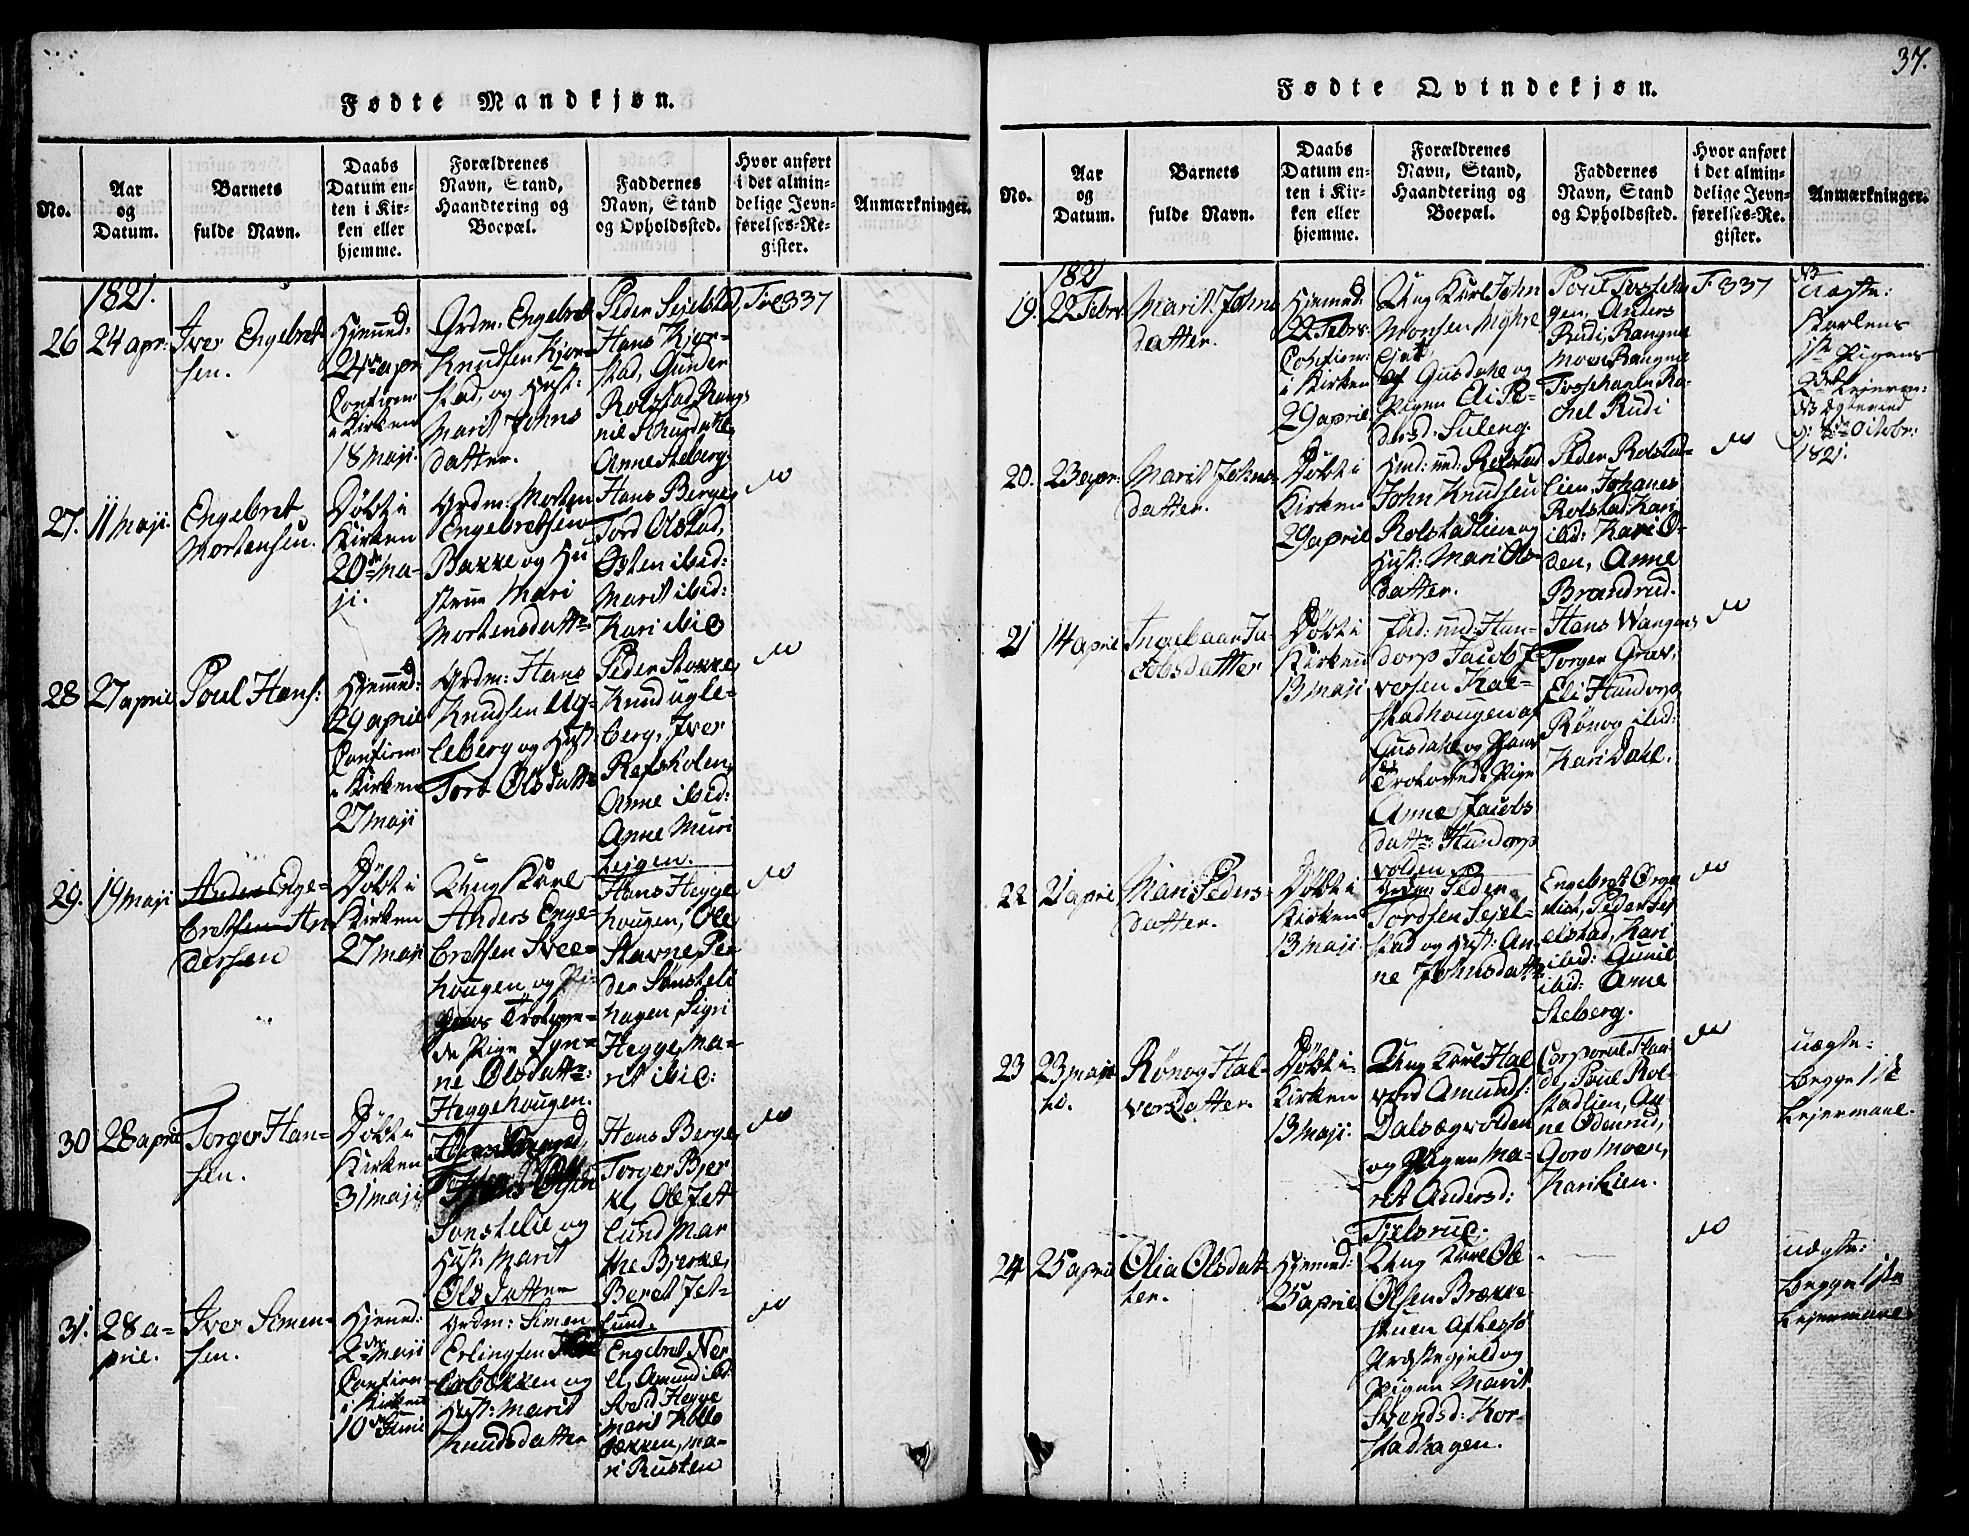 37.
Fødte Mandkjøn.
No.
Aar
og
Datum.
Barnets
fulde Navn.
Daabs
Datum en-
ten i Kir-
ken eller
hjemme.
Forældrenes
Navn, Stand,
Haandtering og
Boepæl.
Faddernes
Navn, Stand
og Opholdssted.
Hvor anført
i det almin-
delige Jevn-
førelses-Re-
gister.
Anmærkninger.
1821.
26
24 apr:
Iver Engebret
sen.
Hjemed:
24de apr
Confirm:
i Kirken
18 maji.
Grdm: Engebret
Knudsen Kjor-
stad, og Hust:
Marit Johns
datter.
Peder Sejelstad,
Hans Kjor-
stad, Gunder
Rolstad, Rang-
nil
Anne Steberg.
Fol 337
27.
11 maji.
Engebret
Mortensen.
Døbt i
Kirken
20de ma-
ji.
Grdm: Morten
Engebretsen
Bakke og Hu
struе Mari
Mortensdattr
Hans Berge,
Tord Olstad,
Østen ibid:
Marit ibid:
Kari ibid
do
28
27 april
Poul Hans:
Hjemed:
29 april
Confirm:
i Kirken
27 maji
Grdm: Hans
Knudsen Ug-
leberg og Hust:
Torb Olsdattr
Peder Stokke,
Knud Ugle-
berg, Iver
Refskolen,
Anne ibid:
Anne Muri
teigen.
do
29.
19 maji
Anders Enge-
bretsen An
dersen
Døbt i
Kirken
27 maji
Ung Karl
Anders Enge-
bretsen Svee-
hougen og Pi-
gens Trolove-
de Pige Syn-
ne Olsdattr:
Heggehougen.
Hans Hegge
hougen, Ole
Stavne, Pe-
der Sønsteli
hagen, Sigri
Hegge, Ma-
rit ibid:
do
30
28 april
Torger Han-
sen.
Døbt i
Kirken
31 maji
Hans Olsen
Sønstelie og
Hust: Marit
Olsdatter
Hans Berge,
Torger Bjer
ke, Ole Jet
lund, Mar
the Bjerke,
Beret Jet-
lund.
do
31.
28 a-
pril.
Iver Simen-
sen.
Hjemed:
2den maji
Confirm
i Kirken
10de Juni
Grdm: Simen
Erlingsen
bækken og
Hust: Marit
Knudsdatter
Engebret Ner
li, Amund ibd:
Svend Hegge
Marit Kollo
bækken, Ma-
ri Rusten
do
Fødte Qvindekjøn.
No.
Aar
og
Datum.
Barnets
fulde Navn.
Daabs
Datum en-
ten i Kir-
ken eller
hjemme.
Forældrenes
Navn, Stand,
Haandtering og
Boepæl.
Faddernes
Navn, Stand
og Opholdssted.
Hvor anført
i det almin-
delige Jevn-
førelses-Re-
gister.
Anmærkninger.
1821
19.
22 Febrv.
Marit Johns
datter.
Hjemed:
22 Febrv:
Confirm:
i Kirken
29 april
Ung Karl John
Monsen Myhre
Ejet
af Gusdahl og
Pigen Eli Pe-
dersd: Suleng.
Poul Tofteha
gen, Anders
Rudi, Rangne
Moe, Rangne
Toftehagen, Ra-
chel Rudi
F. 337
NB
Uægte:
Karlens
1ste Pigens
2det Lejerm:
NB Ægteviet
d: Octobr:
1821.
20.
23 apr:
Marit Johns
datter.
Døbt i
Kirken
29 april
Hmd: und: Rolstad
John Knudsen
Rolstadlien og
Hust: Mari Ols-
datter.
Peder Rolstad-
lien, Johanes
Rolstad, Kari
ibid: Kari O-
den, Anne
Brandrud.
do
21
14 april
Ingebaar Ja-
cobsdatter
Døbt i
Kirken
13 maji
Ind: und: Hun-
dorp Jacob I-
versen Kal-
stadhougen af
Gusdahl og Hans
Trolovede Pige
Anne Jacobs
dattr: Hundorp
volden
Hans Wangen,
Torger Grav,
Eli Hundorp
Rønog ibid:
Kari Dahl.
do
22
21 april
Mari Peders-
datter.
Døbt i
Kirken
13 maji
Grdm: Peder
Tordsen Sejel-
stad og Hust: An-
ne Johnsdattr
Engebret Ørge
Peder Sej
elstad, Kari
ibid: Gunil
ibid: Anne
Steberg.
do
23
23 maji
Rønog Hal-
vorsdatter.
Døbt i
Kirken
13 maji.
Ung Karl Hal
vord Amunds:
Dalsægvolden
og Pigen Ma-
rit Andersd:
Fjelsrud.
Corporal Flaa-
de, Poul Rol-
stadlien, An-
ne Odenrud,
Goro Moen,
Kari Lien.
do
uægte:
begge 1ste
Lejermaal.
24
25 april
Olia Olsdat
ter.
Hjemed:
25 april
Ung Karl Ole
Olsen Brække
stuen af Lessø
Præstegjeld og
Pigen Marit
Svendsd: Kor-
stadhagen.
do
uægte:
begge 1ste
Lejermaal.